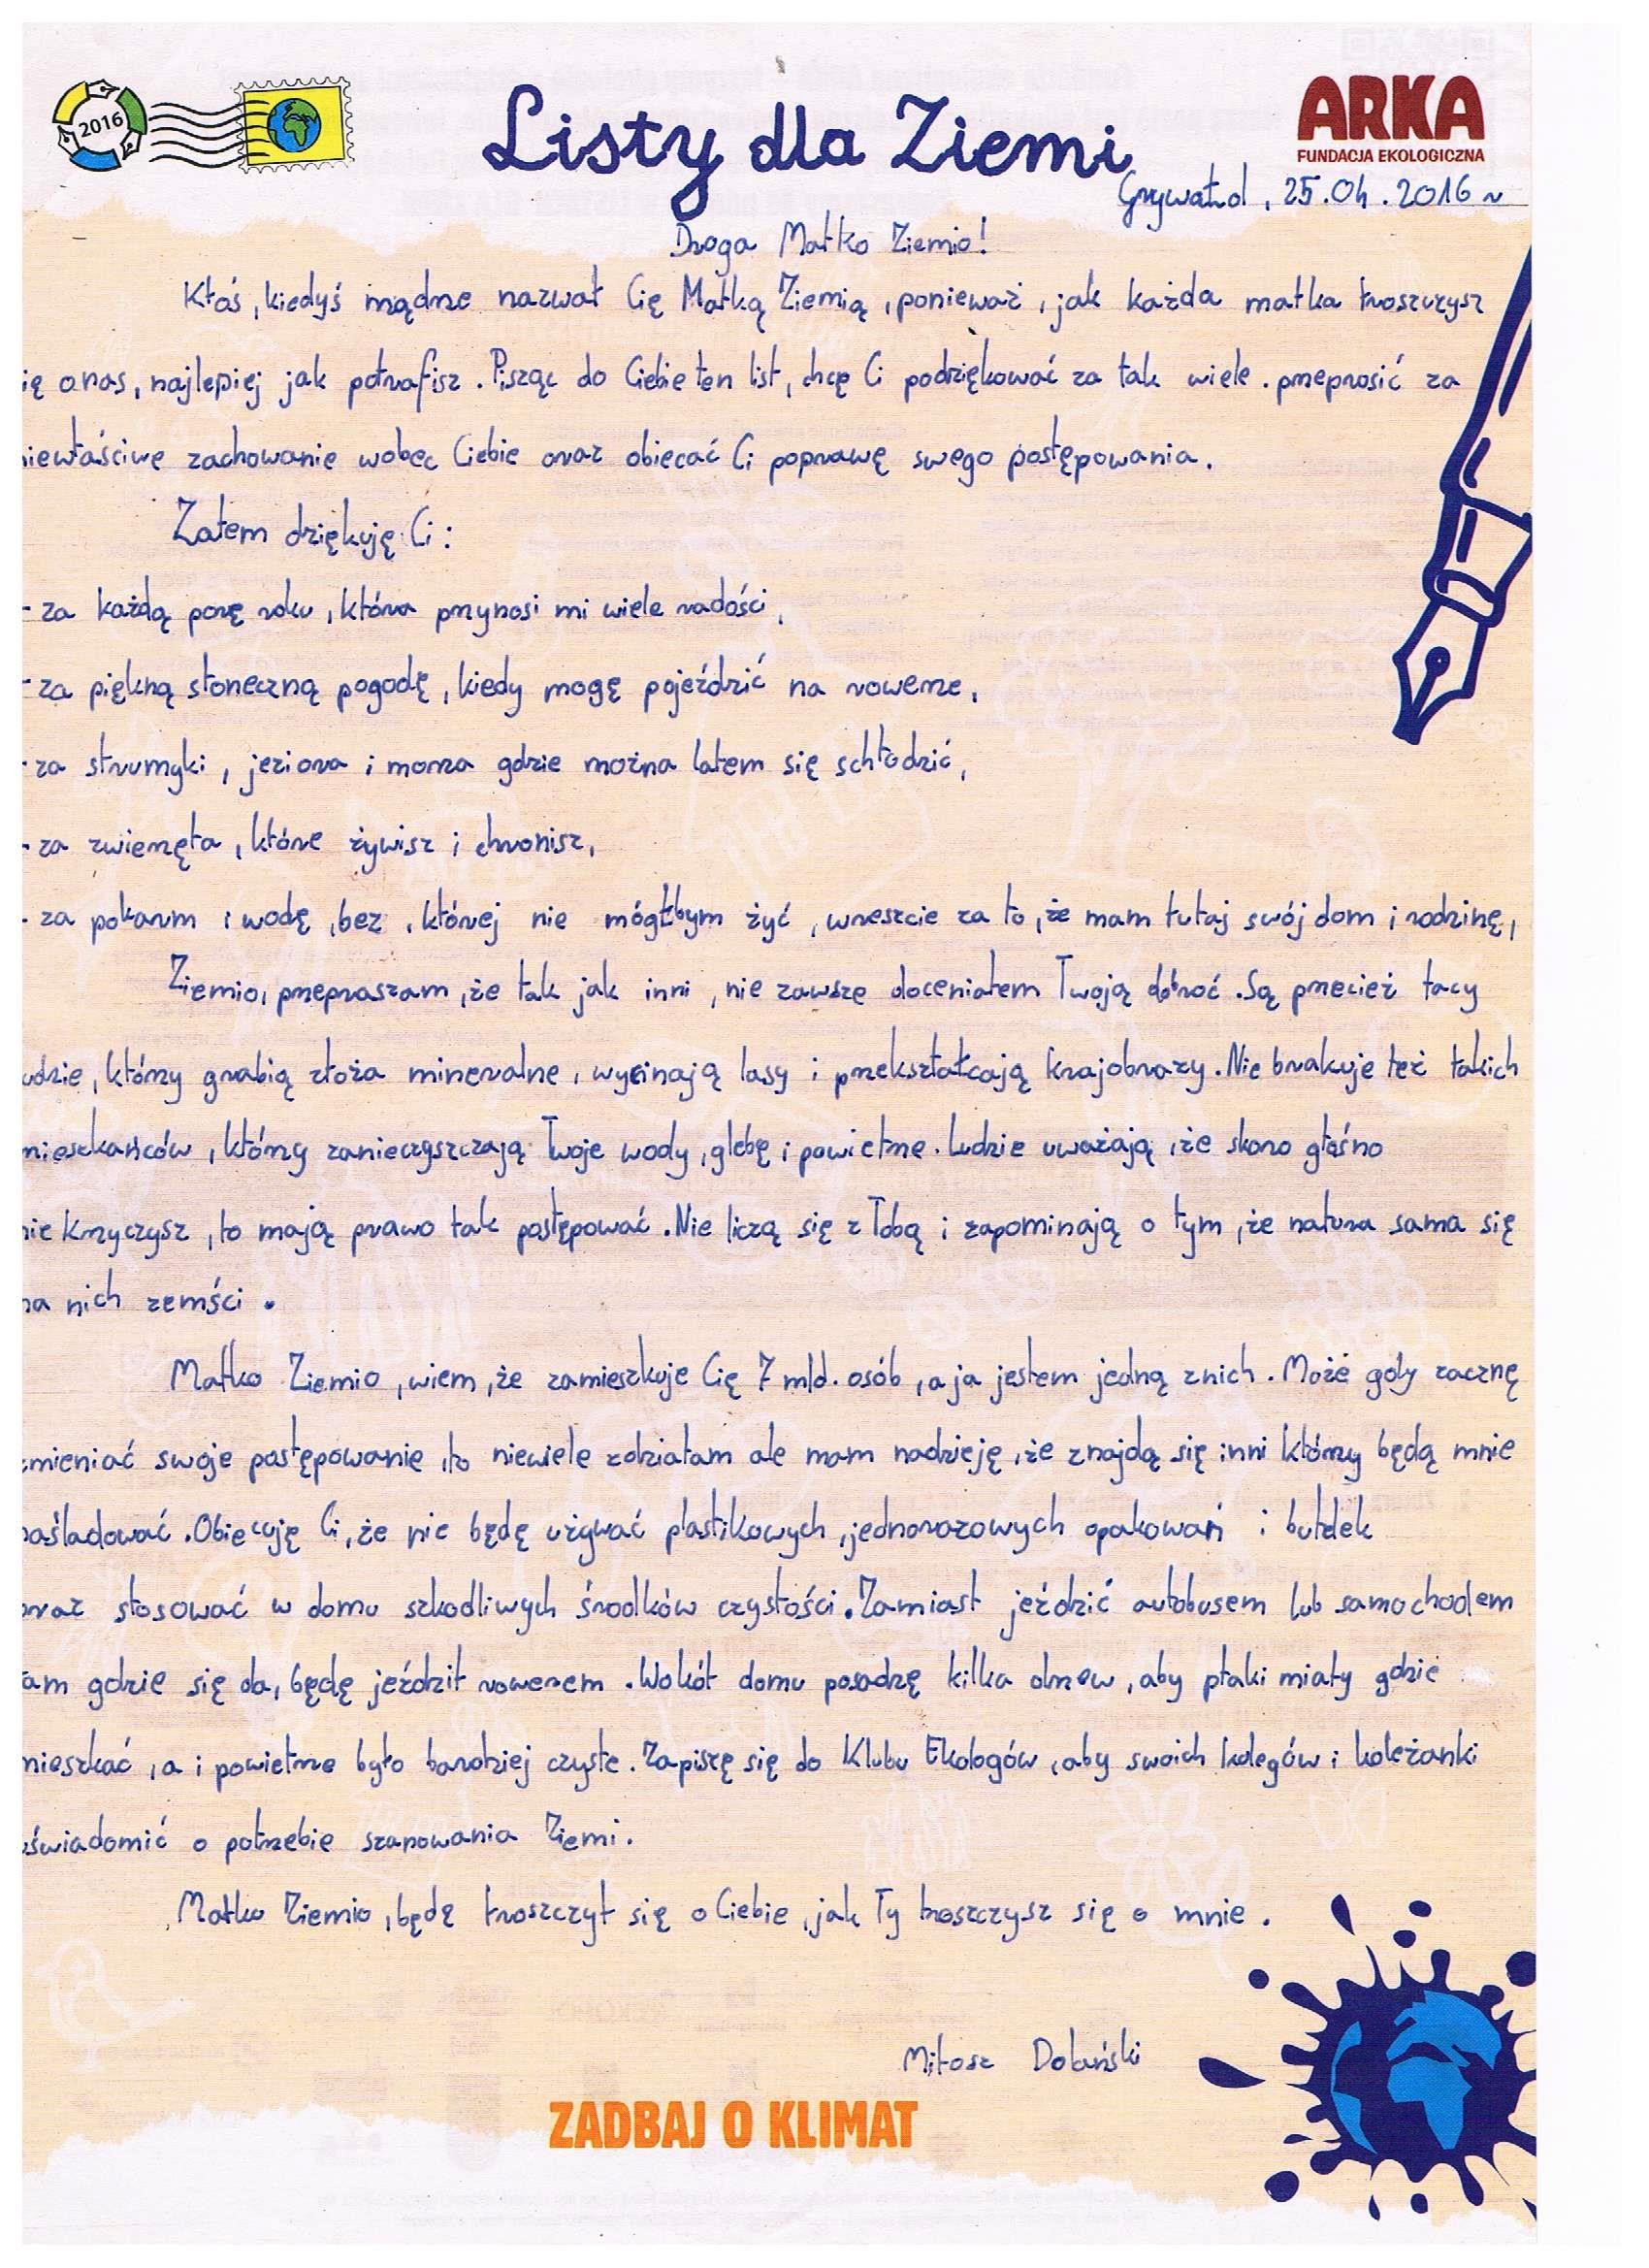 2016
Listy dla Ziemi
ARKA
FUNDACJA EKOLOGICZNA
Grywałd, 25.04.2016 r
Droga Matko Ziemio!
Ktoś, kiedyś mądrze nazwał Cię Matką Ziemią, ponieważ, jak każda matka troszczysz
ię o nas, najlepiej jak potrafisz. Pisząc do Ciebie ten list, chcę Ci podziękować za tak wiele. przeprosić za
niewłaściwe zachowanie wobec Ciebie oraz obiecać Ci poprawę swego postępowania.
Zatem dziękuję Ci:
- za każdą porę roku, która przynosi mi wiele radości,
- za piękną słoneczną pogodę, kiedy mogę pojeździć na rowerze,
- za strumyki, jeziora i morza gdzie można latem się schłodzić,
- za zwierzęta, które żywisz i chronisz,
- za pokarm i wodę, bez, której nie mógłbym żyć, wreszcie za to, że mam tutaj swój dom i rodzinę,
Ziemio, przepraszam, że tak jak inni, nie zawsze doceniałem Twoją dobroć. Są przecież tacy
udzie, którzy grabią złoża mineralne, wycinają lasy i przekształcają krajobrazy. Nie brakuje też takich
mieszkańców, którzy zanieczyszczają Twoje wody, glebę i powietrze. Ludzie uważają, że skoro głośno
nie krzyczysz, to mają prawo tak postępować. Nie liczą się z Tobą i zapominają o tym, że natura sama się
na nich zemści.
Matko Ziemio, wiem, że zamieszkuje Cię 7 mld. osób, a ja jestem jedną z nich. Może gdy zacznę
zmieniać swoje postępowanie, to niewiele zdziałam ale mam nadzieję, że znajdą się inni którzy będą mnie
naśladować. Obiecuję Ci, że nie będę używać plastikowych, jednorazowych opakowań i butelek
oraz stosować w domu szkodliwych środków czystości. Zamiast jeździć autobusem lub samochodem
am gdzie się da, będę jeździł rowerem. Wokół domu posadzę kilka drzew, aby ptaki miały gdzie
mieszkać, a i powietrze było bardziej czyste. Zapiszę się do Klubu Ekologów, aby swoich kolegów i koleżanki
uświadomić o potrzebie szanowania Ziemi.
Matko Ziemio, będę troszczył się o Ciebie, jak Ty troszczysz się o mnie.
Miłosz Dolański
ZADBAJ O KLIMAT